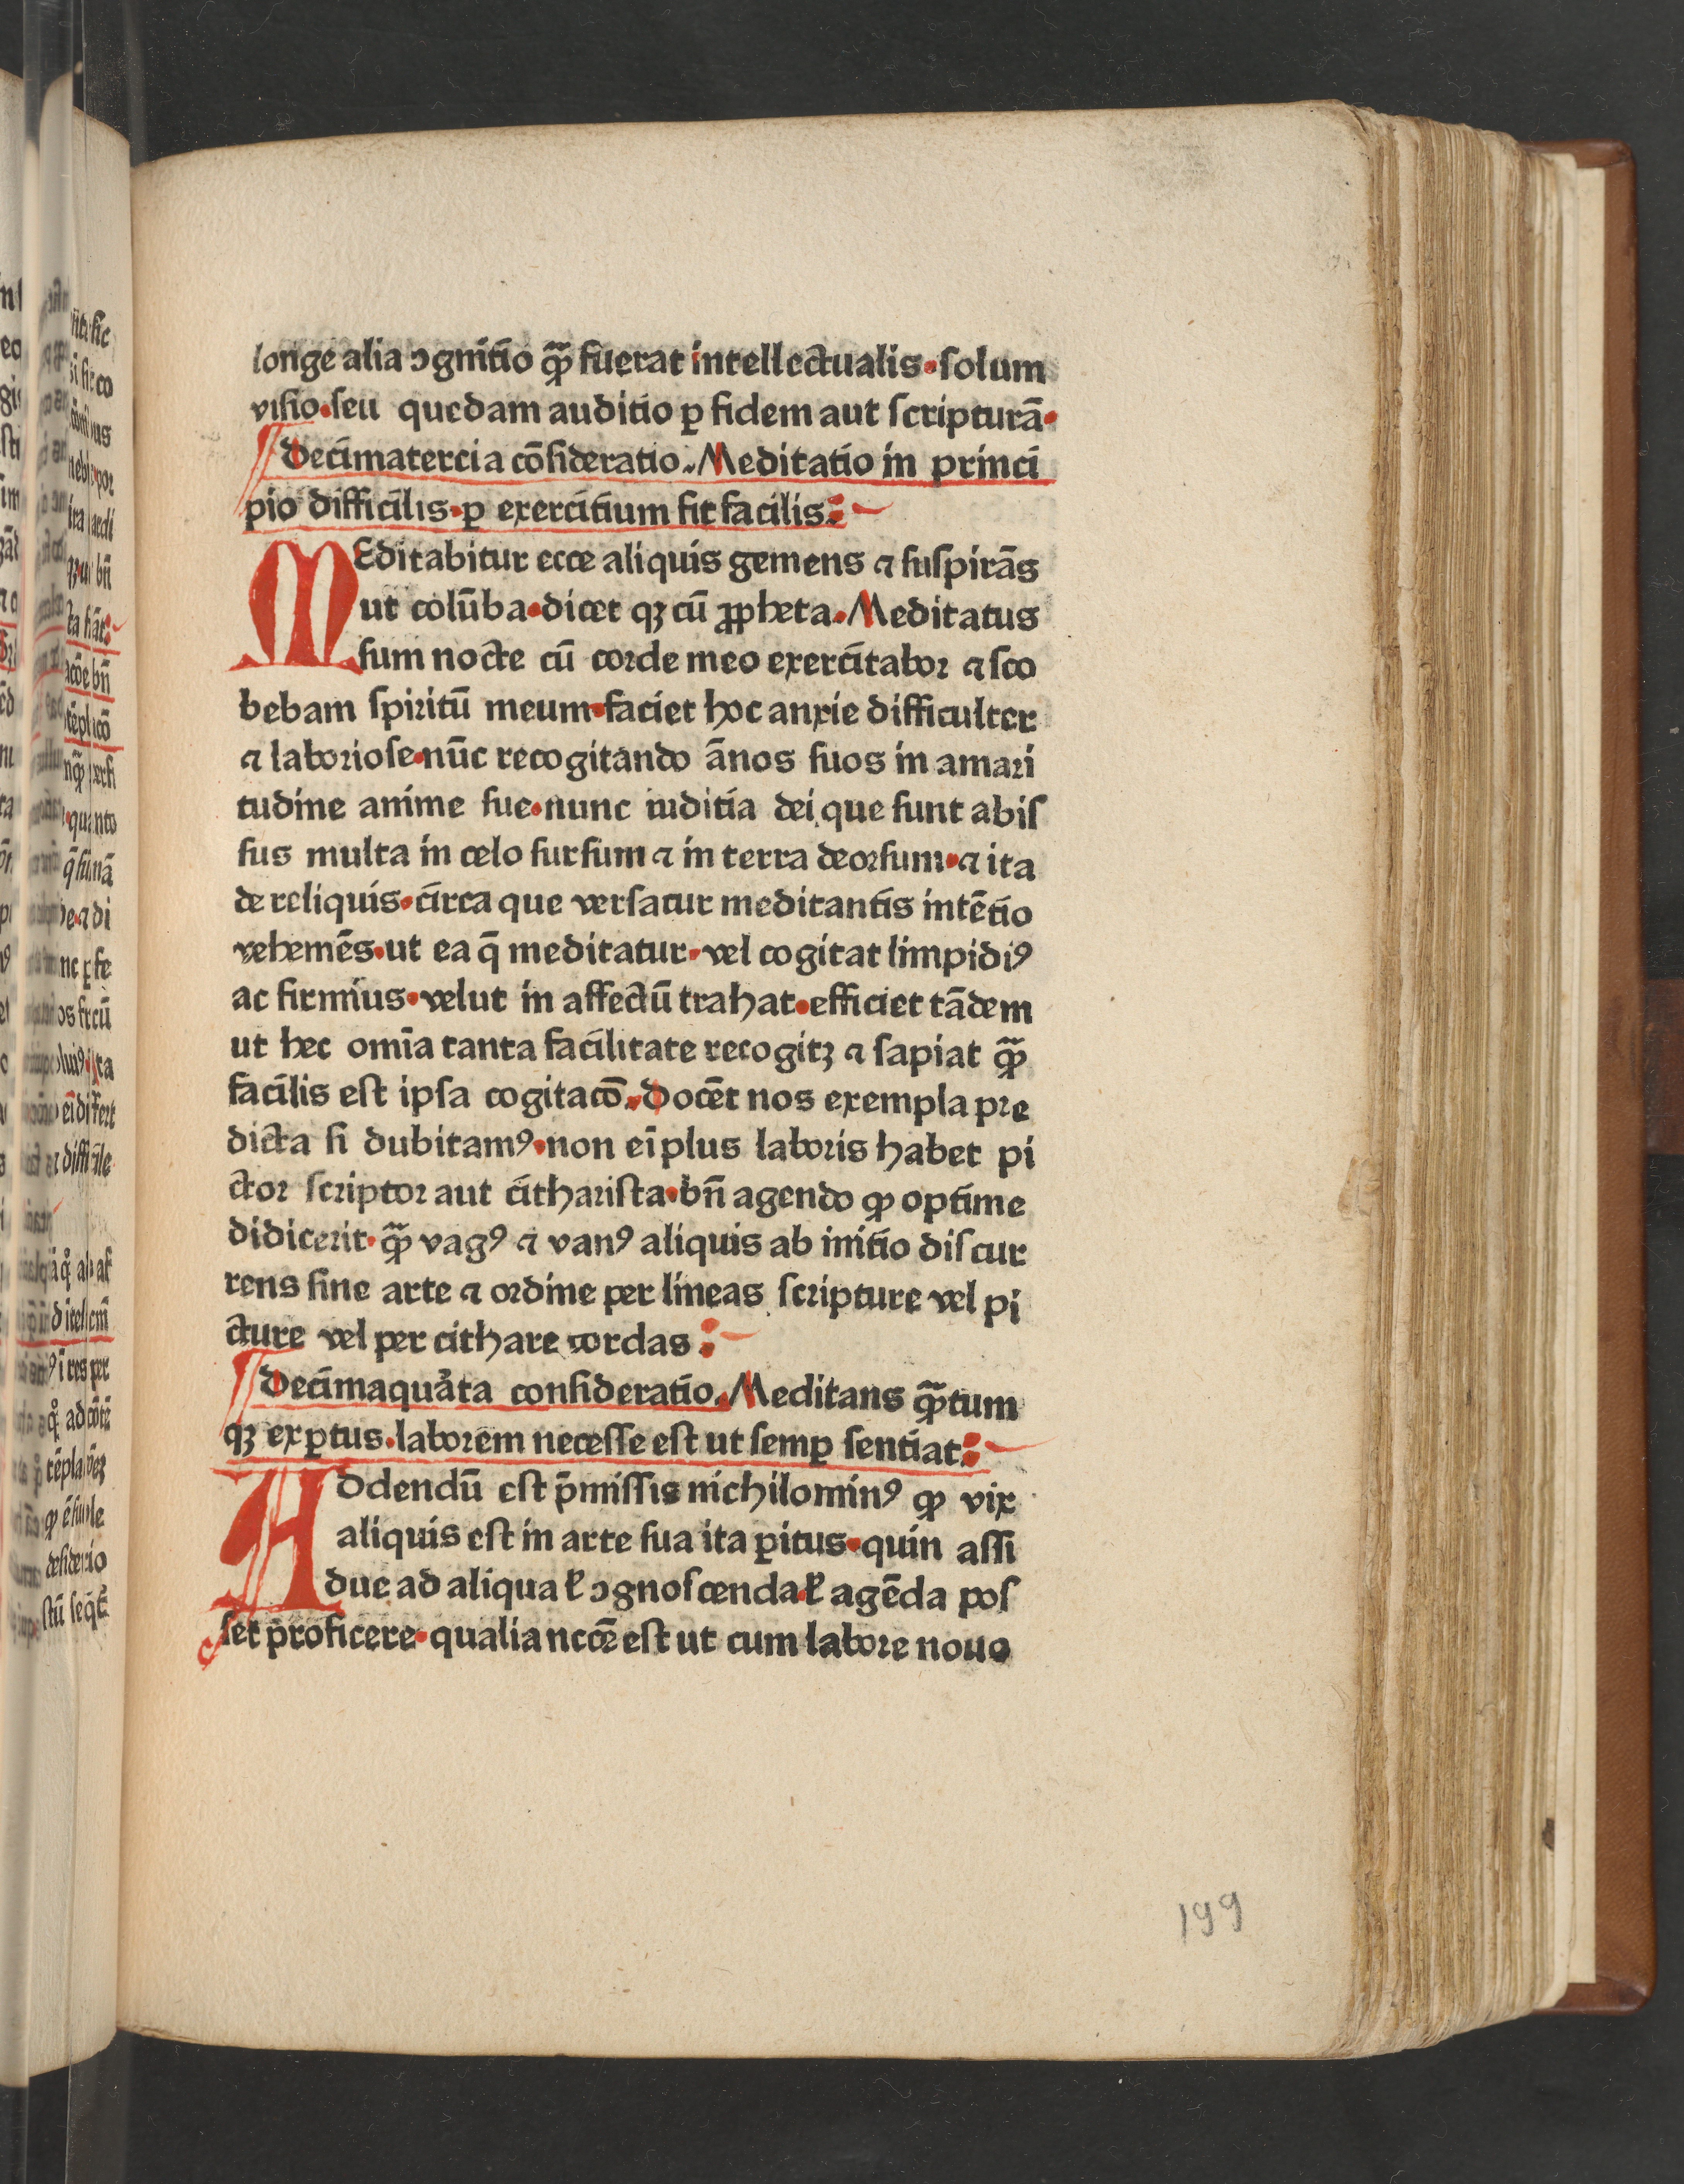 longe alia ↄgnitio qͣ̃ fuerat intellectualis·solum
visio·seu quedam auditio ꝑ fidem aut scripturā·
Decimatercia cōsideratio.Meditatio in princi
pio difficilis·ꝑ exercitium fit facilis:
MEditabitur ecce aliquis gemens ⁊ suspirās
ut colūba·dicet qꝫ cū ꝓpheta·Meditatus
sum nocte cū corde meo exercitabor ⁊ sco
bebam spiritū meum·faciet hoc anxie difficulter
⁊ laboriose·nūc recogitando ānos suos in amari
tudine anime sue·nunc iuditia dei que sunt abis
sus multa in celo sursum ⁊ in terra deorsum·⁊ ita
de reliquis·circa que versatur meditantis intētio
vehemēs·ut ea q̄ meditatur·vel cogitat limpidiꝰ
ac firmius·velut in affectū trahat·efficiet tādem
ut hec omīa tanta facilitate recogitꝫ ⁊ sapiat qͣ̃
facilis est ipsa cogitacō.Docēt nos exempla pre
dicta si dubitamꝰ·non eī plus laboris habet pi
ctor scriptor aut citharista·bn̄ agendo ꝙ optime
didicerit·qͣ̃ vagꝰ ⁊ vanꝰ aliquis ab initio discur
rens sine arte ⁊ ordine per lineas scripture vel pi
cture vel per cithare cordas:
Decimaquarta consideratio.Meditans qͣ̃tum
qꝫ exꝑtus.laborem necesse est ut semꝑ sentiat:
ADdendū est p̄missis nichilominꝰ ꝙ vix
aliquis est in arte sua ita ꝑitus·quin assi
due ad aliqua ł ↄgnoscenda·ł agēda pos
set proficere·qualia nccē est ut cum labore nouo
199